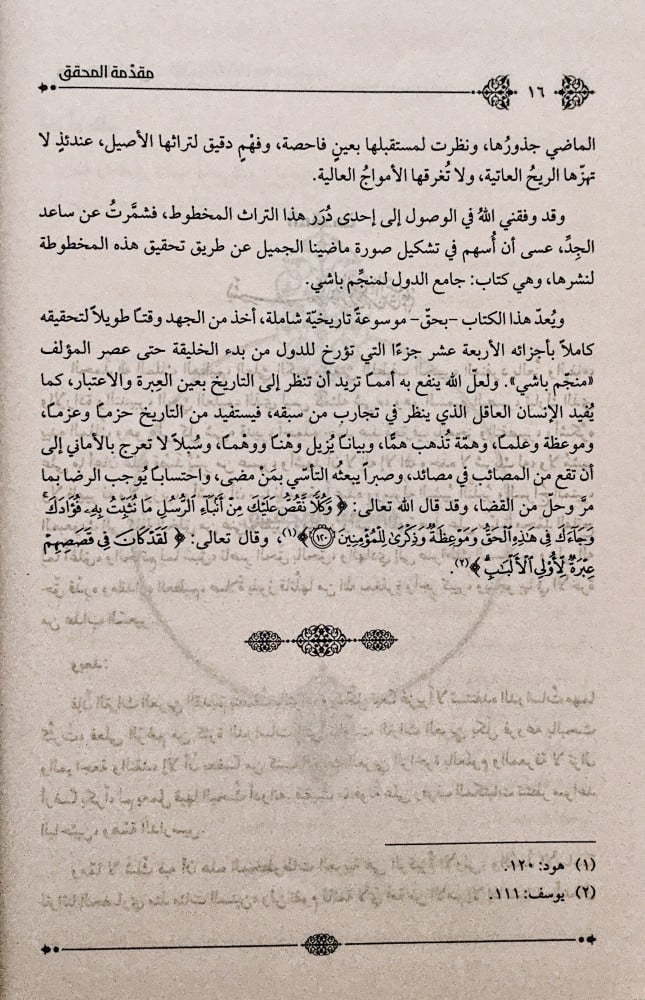 مقدمة المحقق
١٦
الماضي جذورُها، ونظرت لمستقبلها بعينٍ فاحصة، وفهْمٍ دقيق لتراثها الأصيل، عندئذٍ لا
تهزّها الريحُ العاتية، ولا تُغرقها الأمواجُ العالية.
وقد وفقني اللهُ في الوصول إلى إحدى دُرَر هذا التراث المخطوط، فشمَّرتُ عن ساعد
الجِدِّ، عسى أن أُسهم في تشكيل صورة ماضينا الجميل عن طريق تحقيق هذه المخطوطة
لنشرها، وهي كتاب: جامع الدول لمنجِّم باشي.
ويُعدّ هذا الكتاب –بحقّ– موسوعةً تاريخيّة شاملة، أخذ من الجهد وقتًا طويلاً لتحقيقه
كاملاً بأجزائه الأربعة عشر جزءًا التي تؤرخ للدول من بدء الخليقة حتى عصر المؤلف
«منجِّم باشي». ولعلّ الله ينفع به أممًا تريد أن تنظر إلى التاريخ بعين العِبرة والاعتبار، كما
يُفيد الإنسان العاقل الذي ينظر في تجارب من سبقه، فيستفيد من التاريخ حزمًا وعزمًا،
وموعظة وعلمًا، وهمّة تُذهب همًّا، وبيانًا يُزيل وهْنًا ووهْمًا، وسُبلاً لا تعرج بالأماني إلى
أن تقع من المصائب في مصائد، وصبراً يبعثُه التأسّي بمَنْ مضى، واحتسابًا يُوجب الرضا بما
مرَّ وحلّ من القضا، وقد قال الله تعالى: ﴿ وَكُلًّا نَّقُصُّ عَلَيْكَ مِنْ أَنۢبَآءِ ٱلرُّسُلِ مَا نُثَبِّتُ بِهِۦ فُؤَادَكَ ۚ
وَجَآءَكَ فِى هَـٰذِهِ ٱلْحَقُّ وَمَوْعِظَةٌ وَذِكْرَىٰ لِلْمُؤْمِنِينَ ١٢٠ ﴾(١)، وقال تعالى: ﴿ لَقَدْ كَانَ فِى قَصَصِهِمْ
عِبْرَةٌ لِّأُو۟لِى ٱلْأَلْبَـٰبِ ﴾(٢).
(١) هود: ١٢٠.
(٢) يوسف: ١١١.